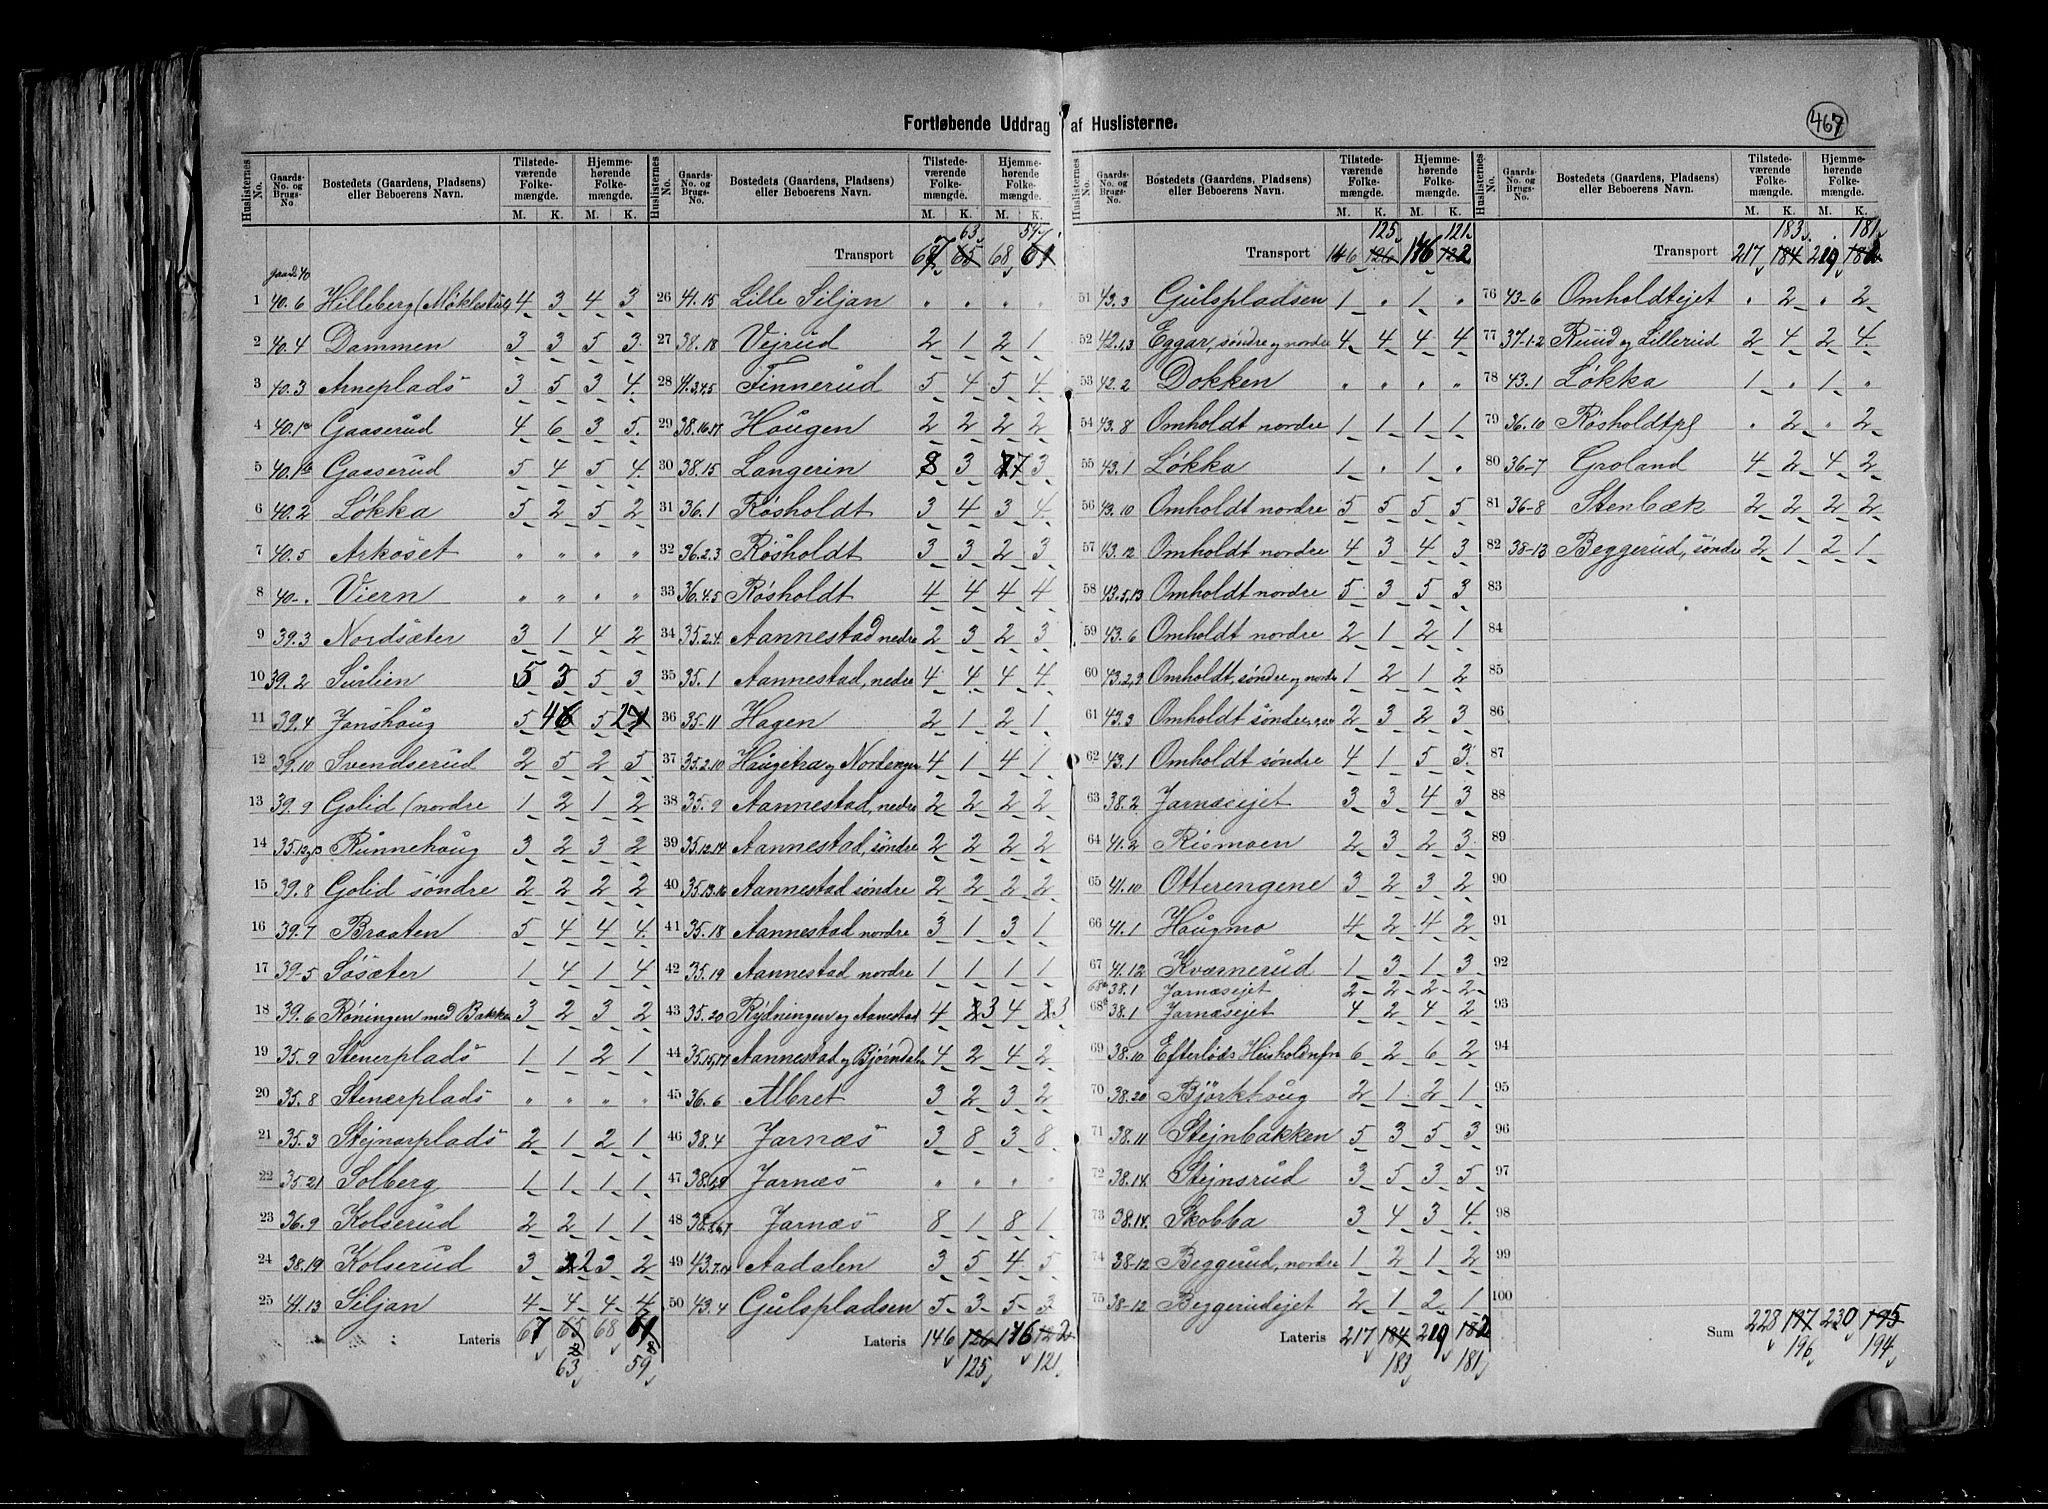 Fortløbende Uddrag af Huslisterne.
467
Huslisternes No. Gaards-No. og Brugs-No Bostedets (Gaardens, Pladsens) eller Beboerens Navn. Tilstedeværende Folkemængde. M. K. Hjemmehørende Folkemængde. M. K.
1 40.6 Hilleberg (Møklestue) 4 3 4 3
2 40.4 Dammen 3 3 5 3
3 40.3 Arneplads 3 5 3 4
4 40.1a Gaaserud 4 6 3 5
5 40.1b Gaaserud 5 4 5 4
6 40.2 Løkka 5 2 5 2
7 40.5 Arkoset " " " "
8 40-. Viern " " " "
9 39.3 Nordsæter 3 1 4 2
10 39.2 Surlien 5 3 5 3
11 39.4 Jonshoug 5 4 5 2
12 39.10 Svendserud 2 5 2 5
13 39.9 Golid (nordre 1 2 1 2
14 35.12,13 Runnehoug 3 2 3 2
15 39.8 Golid søndre 2 2 2 2
16 39.7 Braaten 5 4 4 4
17 39-5 Søsæter 1 4 1 4
18 39.6 Røningen med Bakken 3 2 3 2
19 35.9 Stenerplads 1 1 2 1
20 35.8 Stenerplads " " " "
21 35.3 Stejnarplads 2 1 2 1
22 35.21 Solberg 1 1 1 1
23 36.9 Kolserud 2 2 1 1
24 38.19 Kolserud 3 2 3 2
25 41.13 Siljan 4 4 4 4
Lateris 67 65 68 61
63 59
Huslisternes No. Gaards-No. og Brugs-No. Bostedets (Gaardens, Pladsens) eller Beboerens Navn. Tilstedeværende Folkemængde. M. K. Hjemmehørende Folkemængde. M. K.
63 59
Transport 67 65 68 61
26 41.15 Lille Siljan " " " "
27 38.18 Vejrud 2 1 2 1
28 41.3,4,5 Finnerud 5 4 5 4
29 38.16,17 Haugen 2 2 2 2
30 38.15 Langerin 8 3 7 3
31 36.1 Røsholdt 3 4 3 4
32 36.2.3 Røsholdt 3 3 2 3
33 36.4.5 Røsholdt 4 4 4 4
34 35.2.4 Aannestad nedre 2 3 2 3
35 35.1 Aannestad, nedre 4 4 4 4
36 35-11 Hagen 2 1 2 1
37 35.2.10 Haugetra og Nordengen 4 1 4 1
38 35.9 Aannestad, nedre 2 2 2 2
39 35.12.14 Aannestad, søndre 2 2 2 2
40 35.13.16 Aannestad søndre 2 2 2 2
41 35.18 Aannestad nordre 3 1 3 1
42 35.19 Aannestad nordre 1 1 1 1
43 35.20 Rydningen og Aanestad 4 3 4 3
44 35.15,17 Aannestad og Bjørndalen 4 2 4 2
45 36.6 Albret 3 2 3 2
46 38.4 Jarnæs 3 8 3 8
47 38. Jarnæs " " " "
48 38.1,6,7 Jarnæs 8 1 8 1
49 43.7.14 Aadalen 3 5 4 5
50 43.4 Gulspladsen 5 3 5 3
Lateris 146 126 146 122
125 121
Huslisternes No. Gaards-No. og Brugs-No. Bostedets (Gaardens, Pladsens) eller Beboerens Navn. Tilstedeværende Folkemængde. M. K. Hjemmehørende Folkemængde. M. K.
125 121
Transport 146 126 146 122
51 43.3 Gulspladsen 1 " 1 "
52 42.1,3 Eggar, søndre og nordre 4 4 4 4
53 42.2 Dokken " " " "
54 43.8 Omholdt nordre 1 1 1 1
55 43.1 Løkka 1 " 1 "
56 43.10 Omholdt nordre 5 5 5 5
57 43.12 Omholdt nordre 4 3 4 3
58 43.5,13 Omholdt nordre 5 3 5 3
59 43.6 Omholdt nordre 2 1 2 1
60 43.2,3 Omholdt, søndre og nordre 1 2 1 2
61 43.3 Omholdt søndre 2 3 2 3
62 43.1 Omholdt søndre 4 1 5 3
63 38.2 Jarnæsejet 3 3 4 3
64 41.2 Rismoen 2 3 2 3
65 41.10 Otterengene 3 2 3 2
66 41.1 Haugmo 4 2 4 2
67 41.12 Kværnerud 1 3 1 3
68a 38.1 Jarnæsejet 2 2 2 2
68b 38.1 Jarnæsejet 4 2 4 2
69 38.10 Efterløds Husholdn 6 2 6 2
70 38.20 Bjørkhoug 2 1 2 1
71 38.11 Stejnbakken 5 3 5 3
72 38.14 Stejnsrud 3 5 3 5
73 38.14 Skobba 3 4 3 4
74 38-12 Beggerud, nordre 1 2 1 2
75 38-12 Beggerudejet 2 1 2 1
Lateris 217 184 219 182
183 181
Huslisternes No. Gaards-No. og Brugs-No. Bostedets (Gaardens, Pladsens) eller Beboerens Navn. Tilstedeværende Folkemængde. M. K. Hjemmehørende Folkemængde. M. K.
183 181
Transport 217 184 219 182
76 43-6 Omholdtejet " 2 " 2
77 37-1.2 Ruud og Lillerud 2 4 2 4
78 43.1 Løkka 1 " 1 "
79 36.10 Røsholdtpl " 2 " 2
80 36-7 Groland 4 2 4 2
81 36-8 Stenbæk 2 2 2 2
82 38-13 Beggerud, søndre 2 1 2 1
83
84
85
86
87
88
89
90
91
92
93
94
95
96
97
98
99
100
Sum 228 197 230 195
196 194